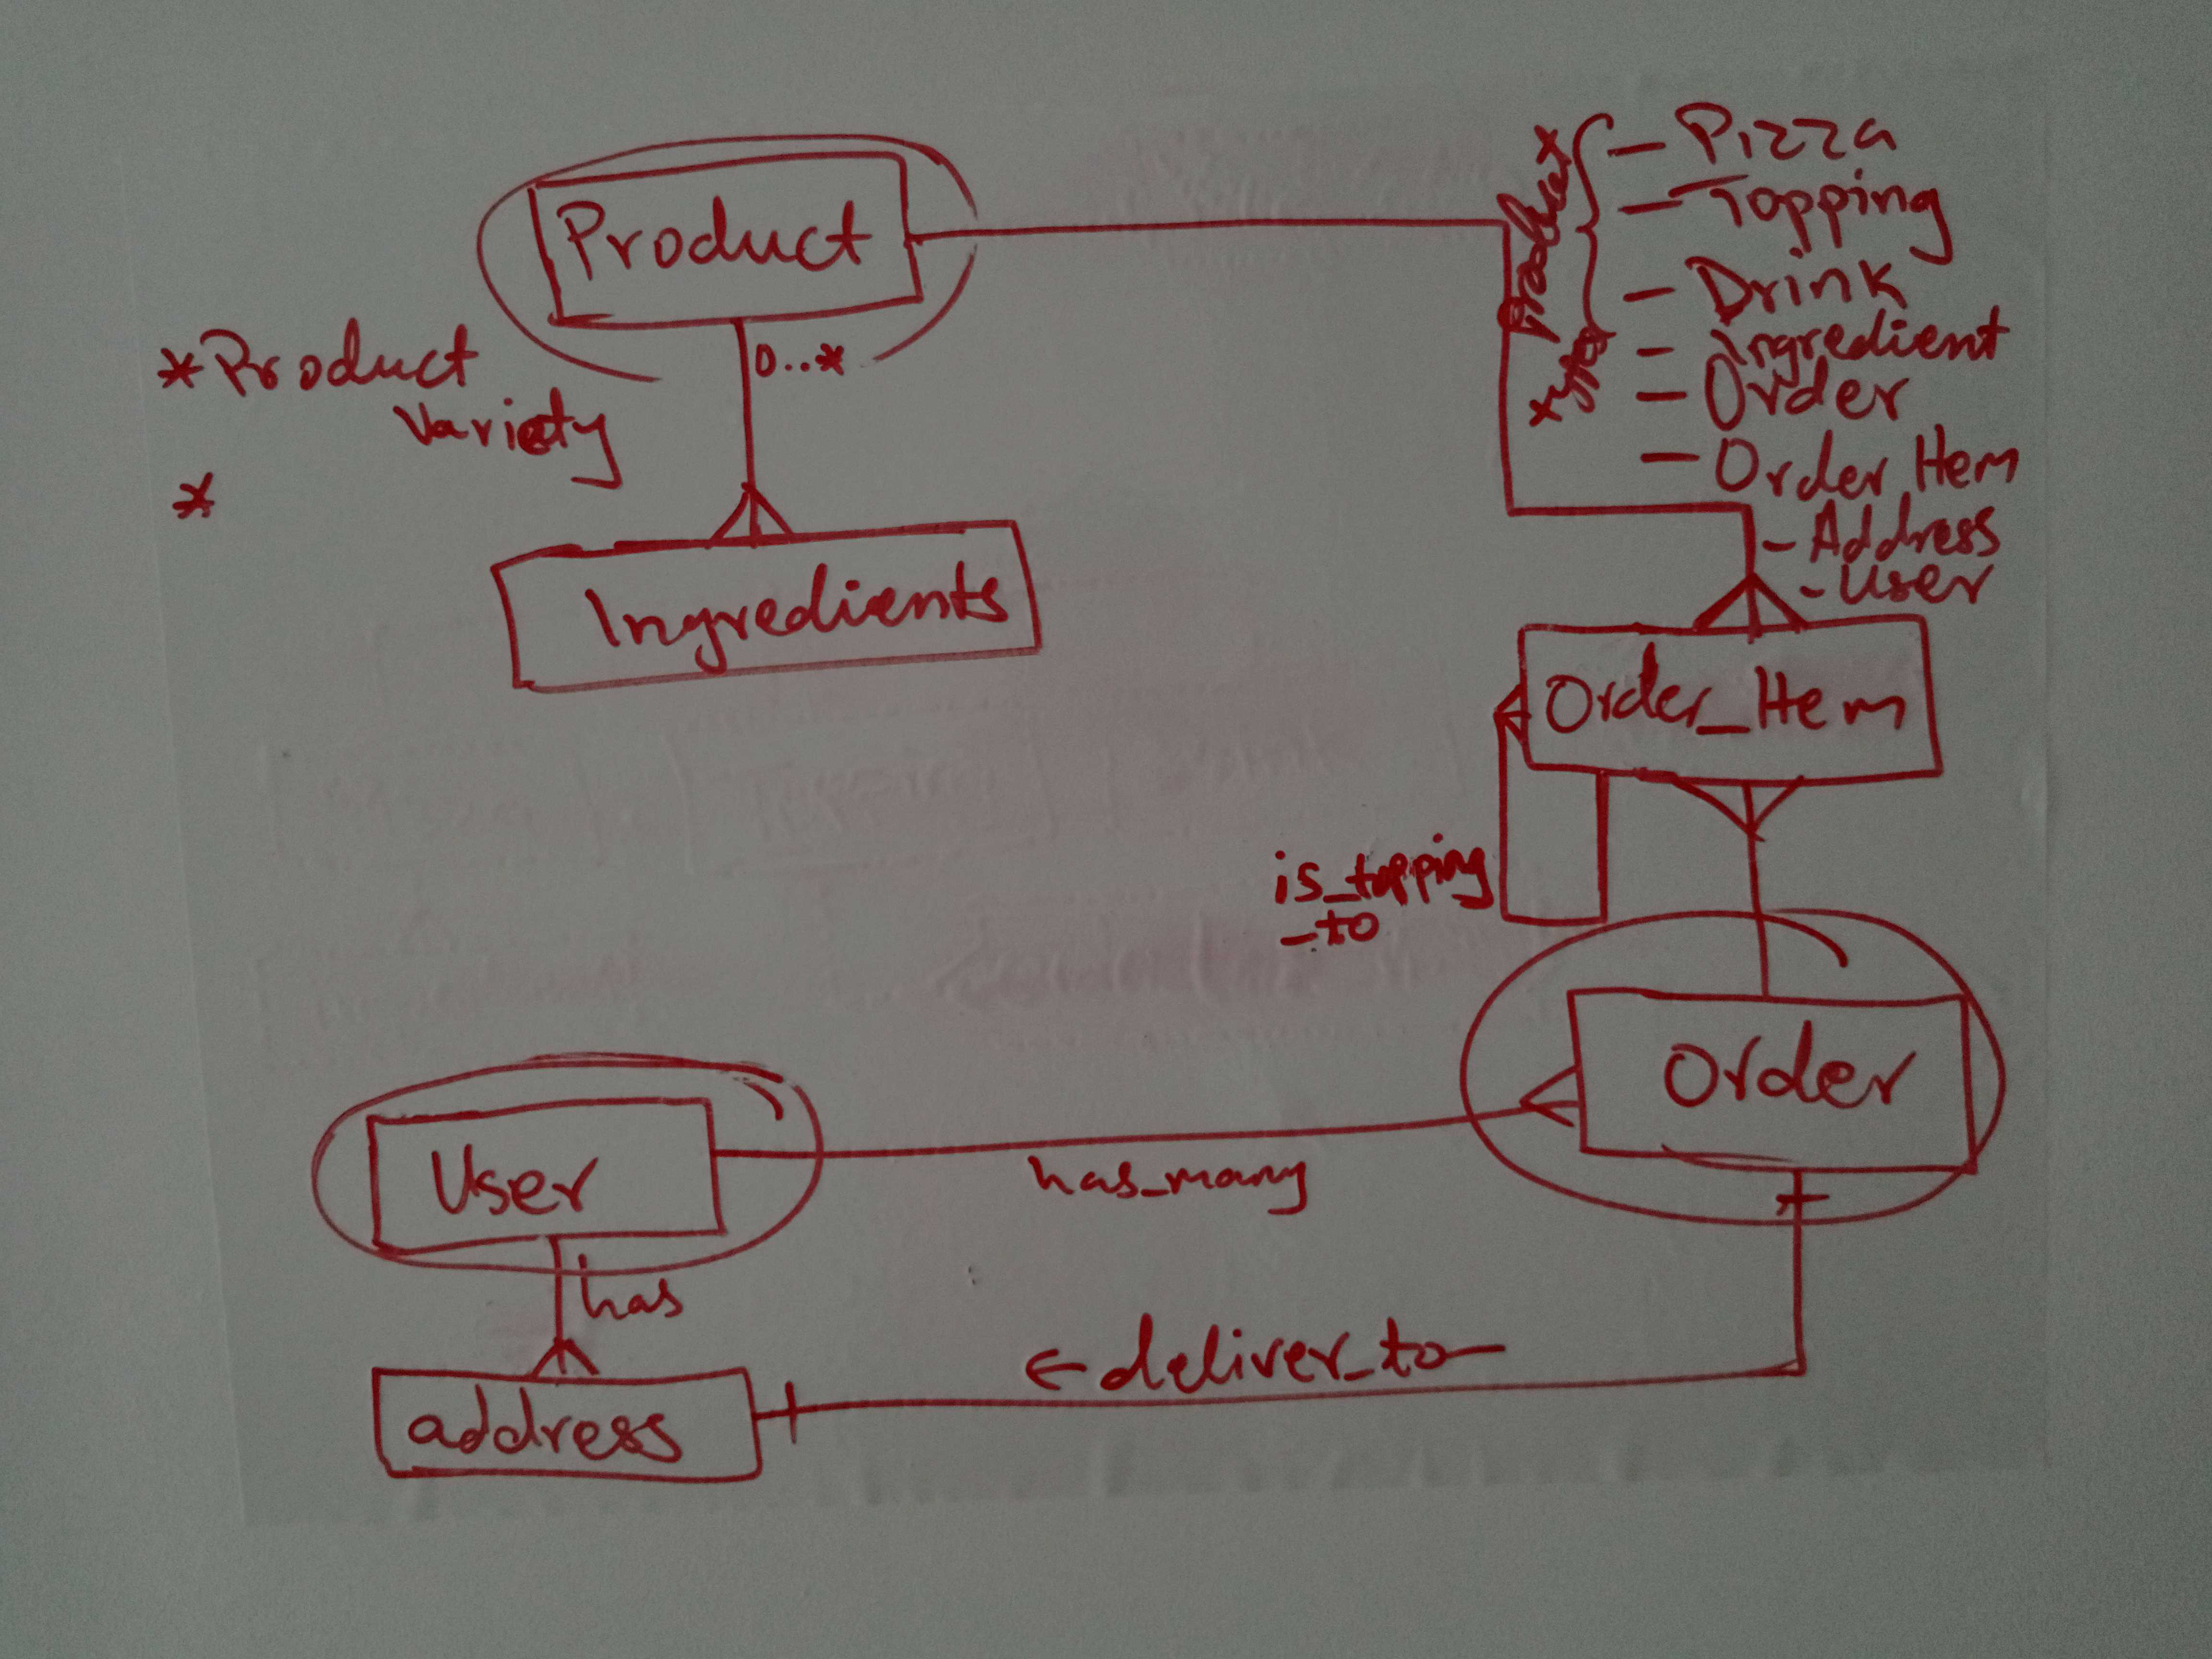 Product
*Product
Variety
*
0..*
Ingredients
Product
*type
- Pizza
- Topping
- Drink
- Ingredient
- Order
- Order Item
- Address
- User
Order_Item
is_topping
_to
Order
User
has_many
has
← deliver_to —
address